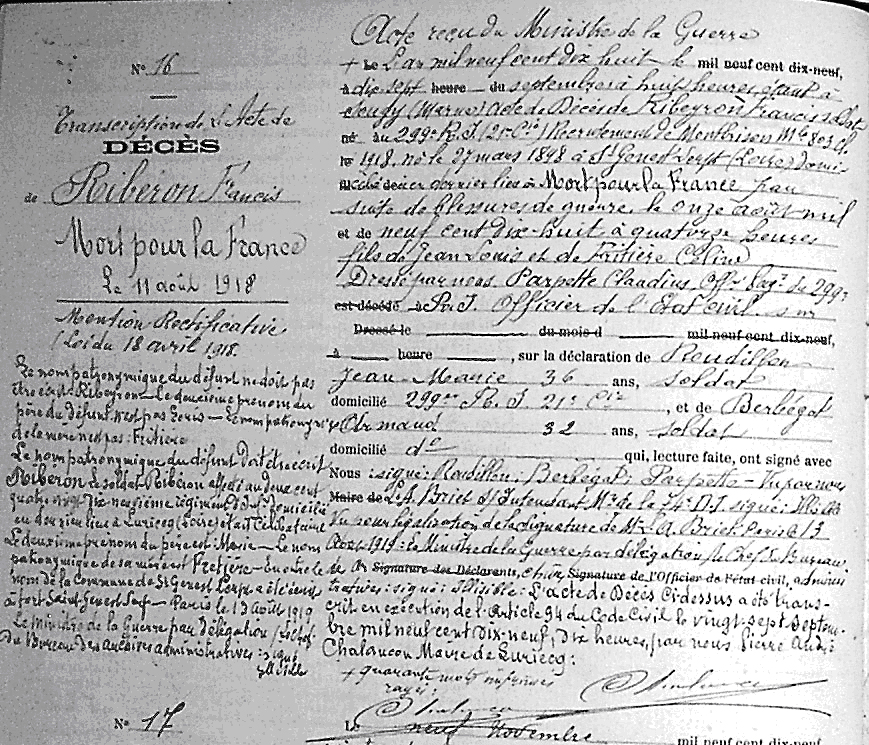 Nº 16
Transcription de l'Acte de
DÉCÈS
de Ribéron Francis
Mort pour la France
Le 11 août 1918
Mention Rectificative
Loi du 18 avril 1918.
Le nom patronymique du défunt ne doit pas
être écrit Ribeyron - Le deuxième prénom du
père du défunt n'est pas Louis - Le nom patronymique
de la mère n'est pas : Fritière
Le nom patronymique du défunt doit être écrit
Ribéron le soldat Ribéron affecté au deux cent
quatre vingt dix neuvième régiment d'Inf. domicilié
en dernier lieu à Luriecq (Loire) était Célibataire
Le deuxième prénom du père est : Marie - Le nom
patronymique de sa mère est Fretière - En outre le
nom de la Commune de St Genest Lerpt a été écrit
à tort Saint Genest - Paris le 13 août 1919
Le ministre de la Guerre par délégation
du Bureau des archives administratives : signé
illisible
Nº 17
Acte reçu du Ministre de la Guerre
+ Le L'an mil neuf cent dix huit le mil neuf cent dix-neuf,
à dix sept heure du septembre à huit heures étant à
Sougy (Marne) Acte de Décès de Ribeyron Francis
né au 299e R.I. (21e Cie) Recrutement de Montbrison Mle 803 Cl.
le 1918. né le 27 mars 1898 à St Genest Lerpt (Loire) domi-
cilié dernier lieu à Mort pour la France par
suite de blessures de guerre, le onze août mil
et de neuf cent dix-huit à quatorze heures
fils de Jean Louis et de Fritière Céline
Dressé par nous Parpette Claudius, Offr Pay. du 299e
est décédé à R.I. Officier de l'Etat civil sur
Dressé le du mois d mil neuf cent dix-neuf,
à heure , sur la déclaration de Roudillon
Jean Marie 36 ans, soldat
domicilié 299e R. I. 21e Cie , et de Berbégat
Armand 32 ans, soldat
domicilié dº qui, lecture faite, ont signé avec
Nous : signé : Roudillon, Berbégat, Parpette - Vu par nous
Maire de L. A. Briet s/Intendant Mre de la 74e D.I. signé :
Vu pour légalisation de la signature de Mr A. Briet. Paris le 13
Août 1919. Le Ministre de la Guerre par délégation le Chef de Bureau
Signature des Déclarants, Signature de l'Officier de l'état civil,
signé : illisible : L'acte de Décès ci-dessus a été trans-
crit en exécution de l'Article 94 du Code Civil le vingt-sept Septem-
bre mil neuf cent dix-neuf, dix heures, par nous Pierre André
Chalancon Maire de Luriecq :
+ quarante mots imprimés
rayés.
Le neuf Novembre mil neuf cent dix-neuf,